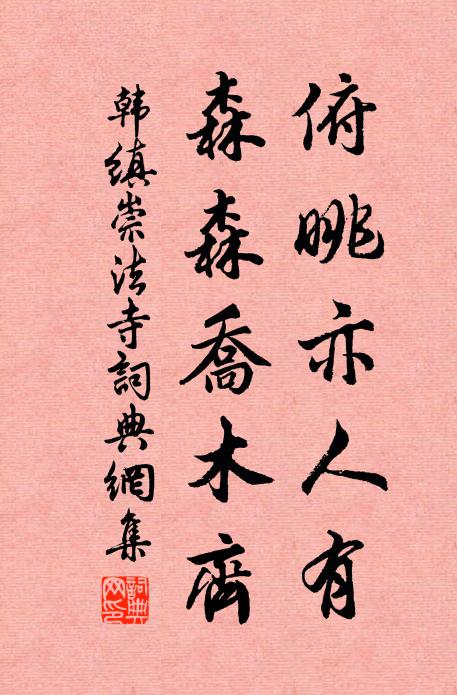 俯眺亦人有
森森喬木齊
韩縝崇法寺詞典網集
詞典网印